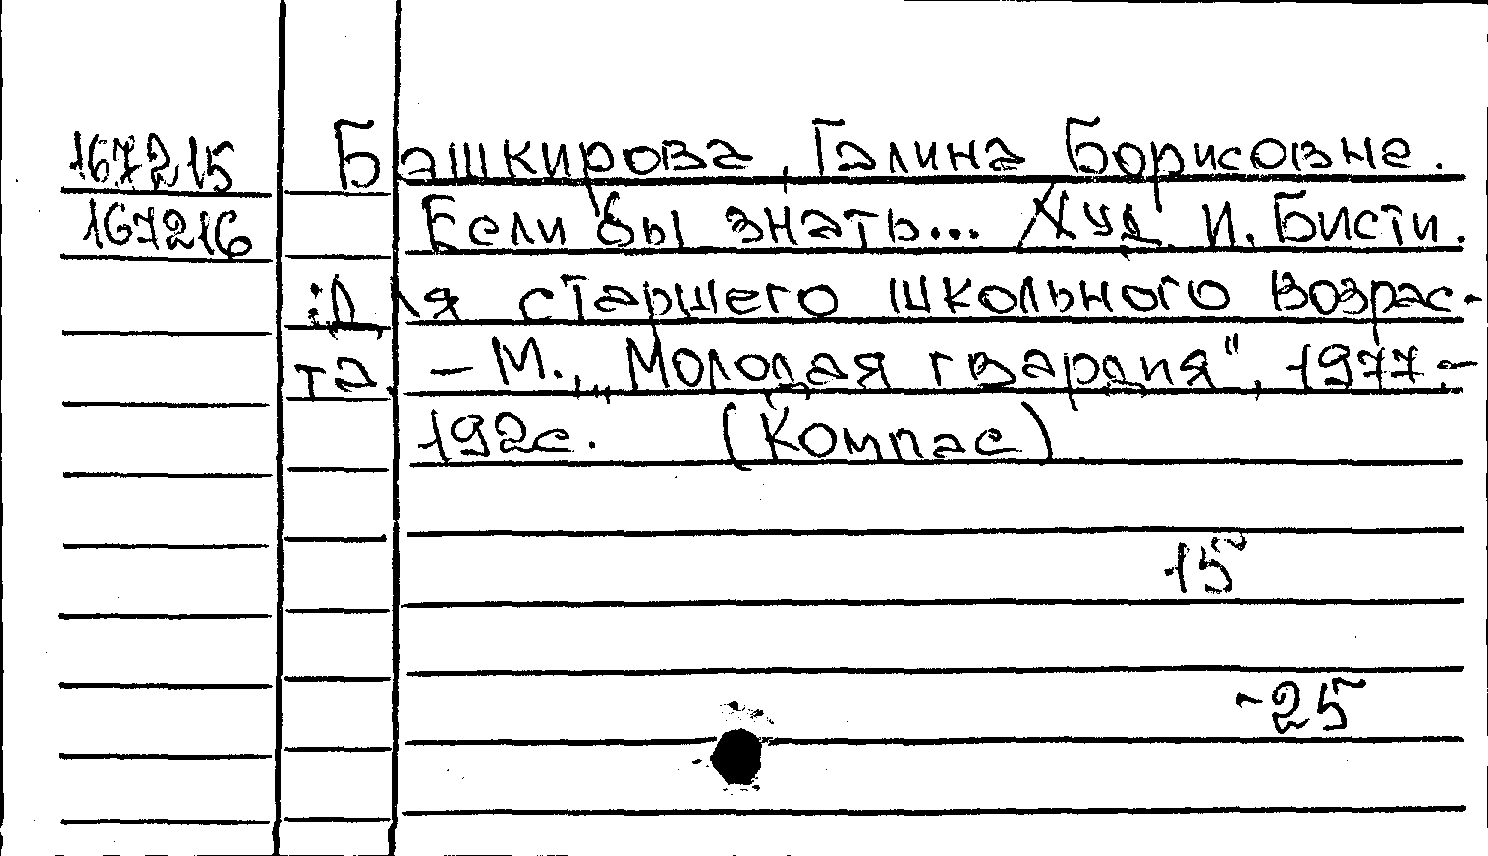 167215 Башкирова, Галина Борисовна.
167216 Если бы знать... Худ. И. Бисти.
: Для старшего школьного возрас-
та. - М., „Молодая гвардия", 1977. -
192с. (Компас)
15
-25